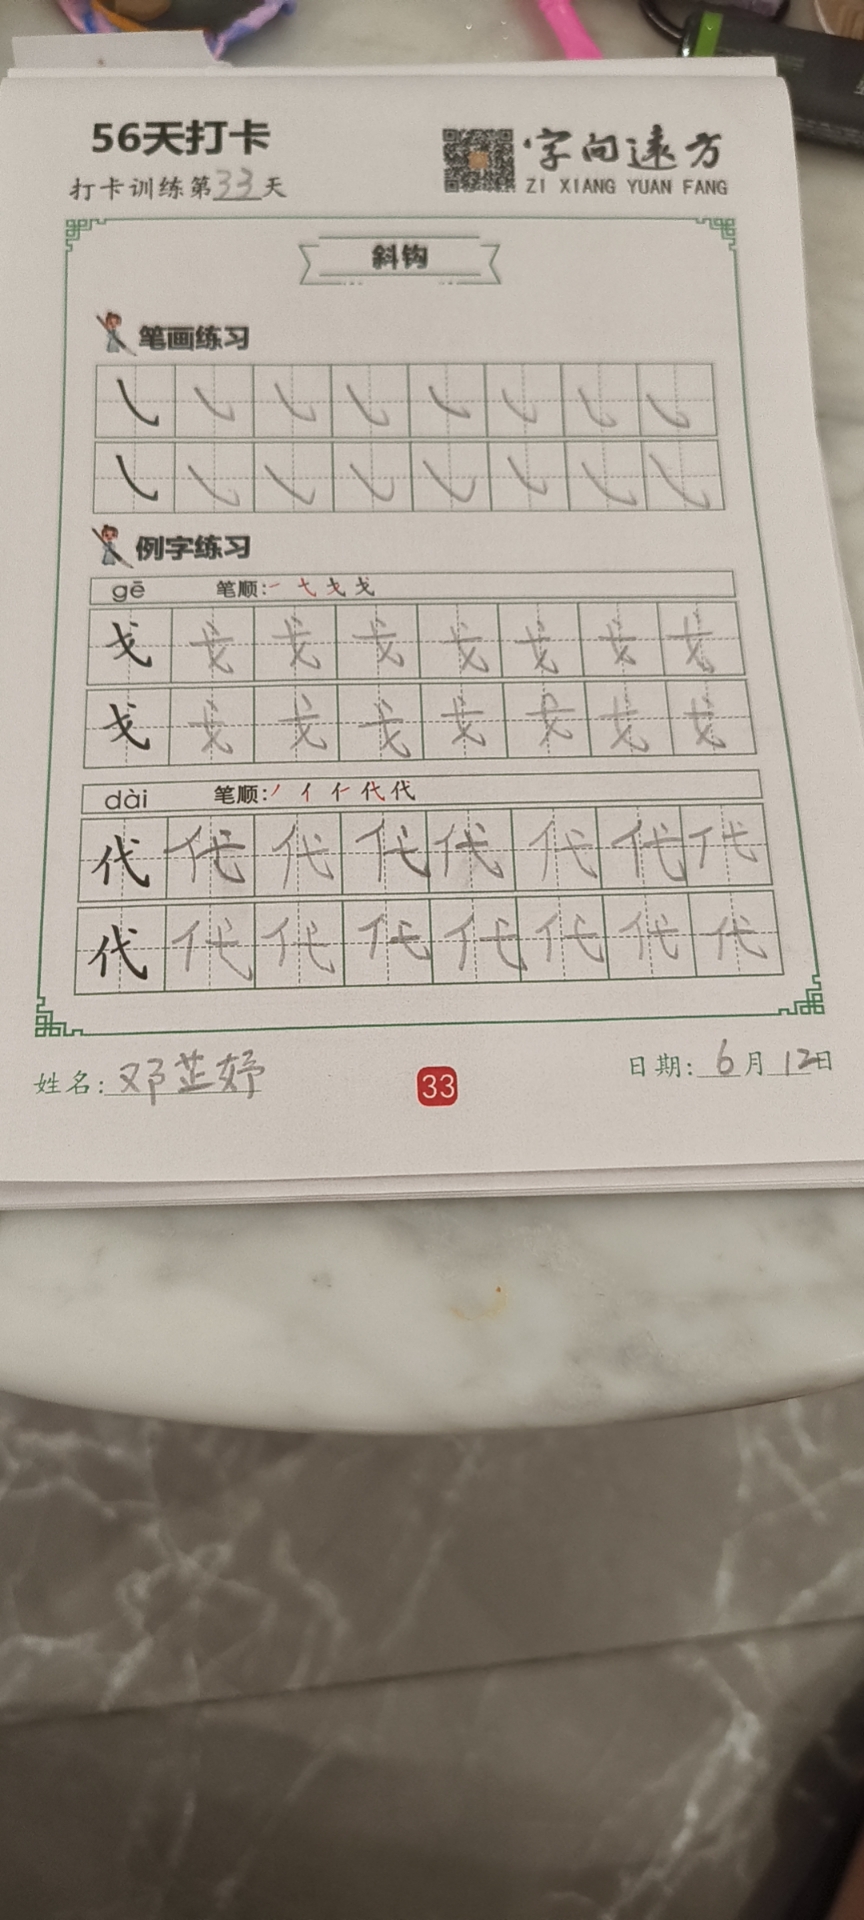 56天打卡
字向远方
打卡训练第33天
ZI XIANG YUAN FANG
斜钩
笔画练习
例字练习
gē 笔顺:
戈 戈 戈 戈 戈 戈 戈 戈
戈 戈 戈 戈 戈 戈 戈 戈
dài 笔顺: 丿 亻 代
代 代 代 代 代 代 代 代
代 代 代 代 代 代 代 代
姓名: 邓芷妤
33
日期: 6月12日